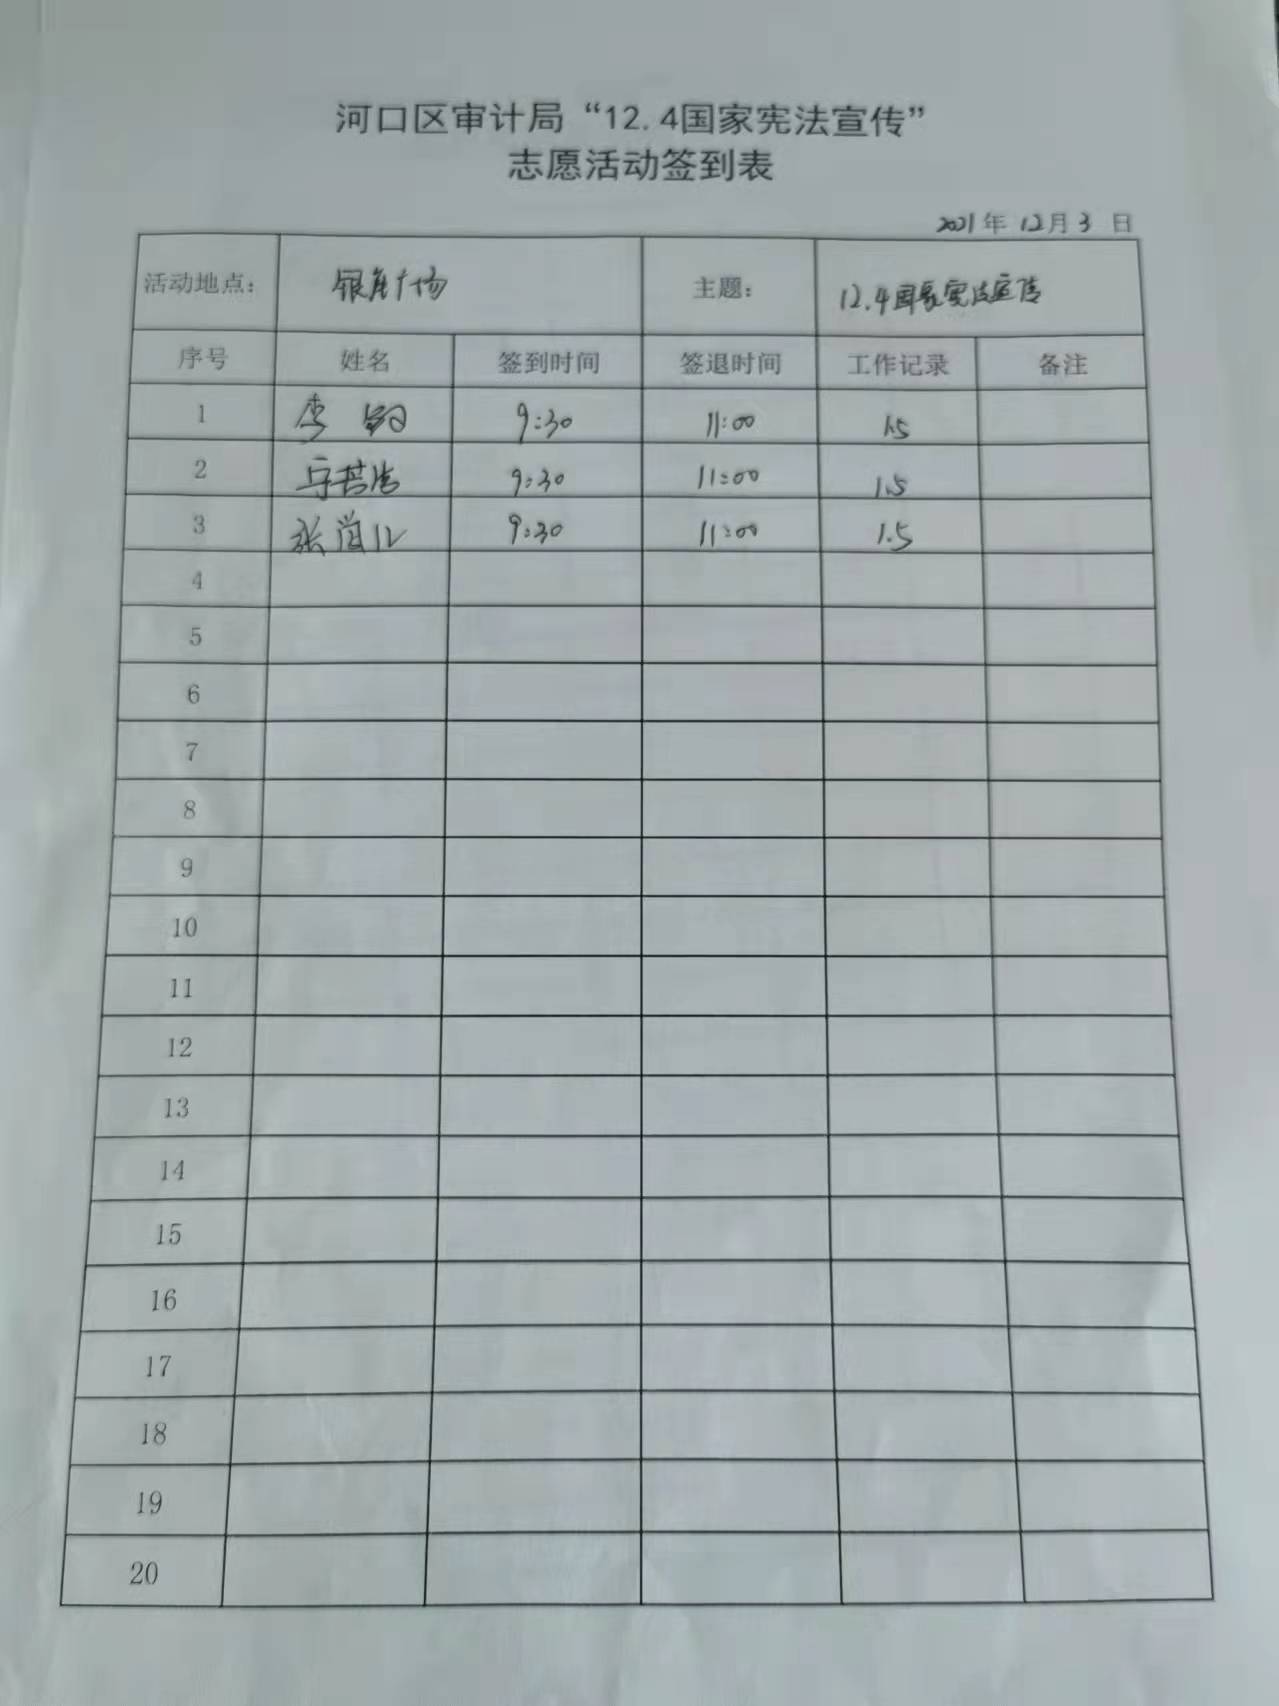 河口区审计局“12.4国家宪法宣传”
志愿活动签到表
2021年 12月 3 日
活动地点： 银座广场 主题： 12.4国家宪法宣传
序号 姓名 签到时间 签退时间 工作记录 备注
1 李 9:30 11:00 1.5
2 9:30 11:00 1.5
3 张 9:30 11:00 1.5
4
5
6
7
8
9
10
11
12
13
14
15
16
17
18
19
20